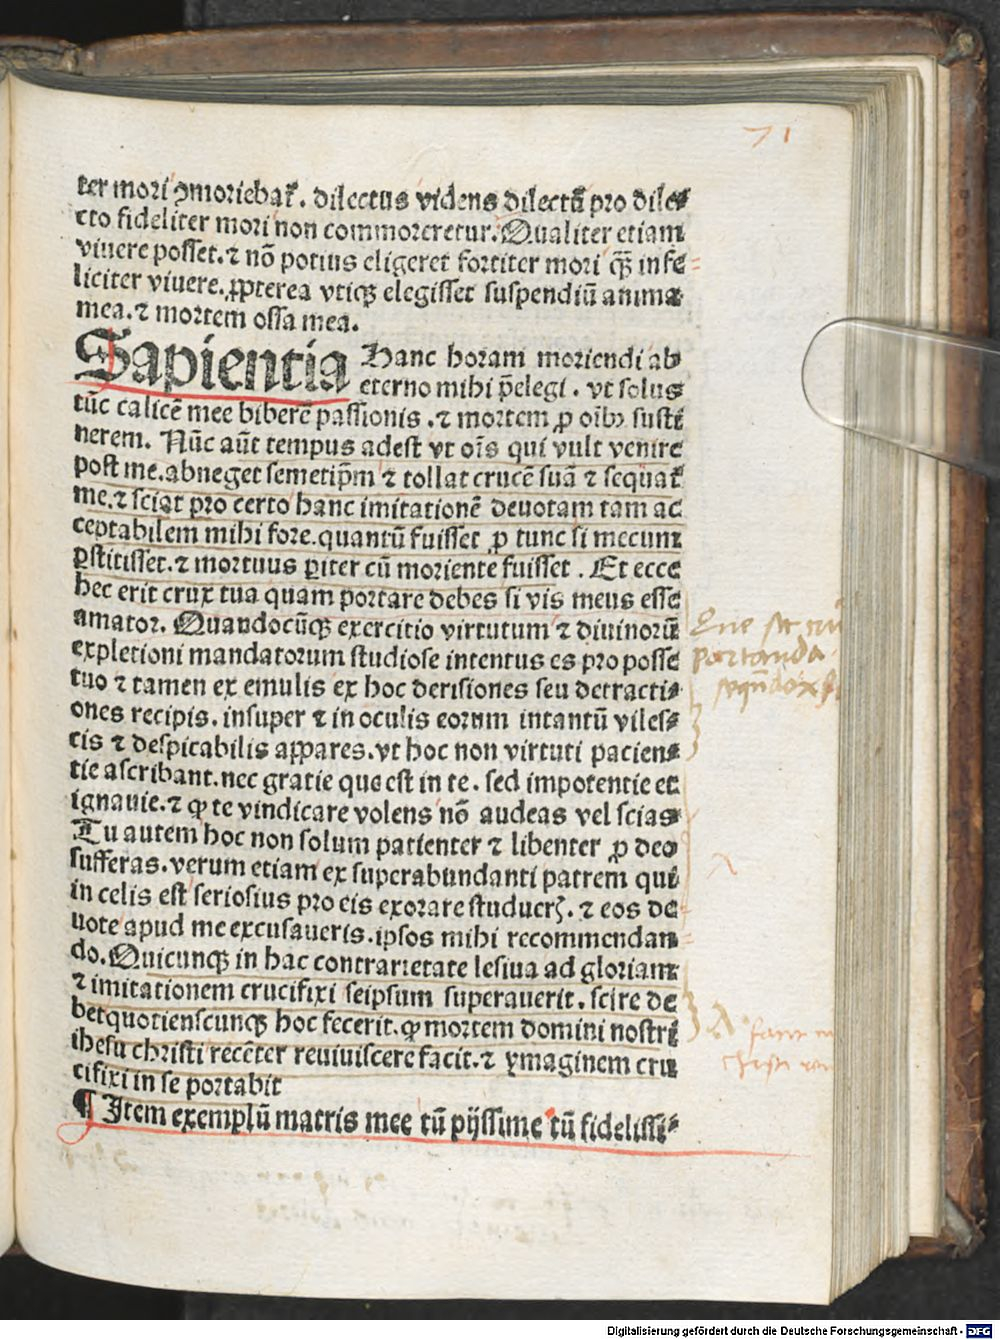 71
ter mori ꝯmoriebat᷑. dilectus videns dilectū pro dile⸗
cto fideliter mori non commoreretur. Qualiter etiam
viuere posset. ⁊ nō potius eligeret fortiter mori q̄ꝫ infe⸗
liciter viuere. ꝓpterea vtiqꝫ elegisset suspendiū anima
mea. ⁊ mortem ossa mea.
Sapientia Hanc horam moriendi ab
eterno mihi p̄elegi. vt solus
tūc calicē mee biberē passionis. ⁊ mortem ꝓ oībꝫ susti
nerem. Nūc aūt tempus adest vt oīs qui vult venire
post me. abneget semetip̄m ⁊ tollat crucē suā ⁊ sequat᷑
me. ⁊ sciat pro certo hanc imitationē deuotam tam ac
ceptabilem mihi fore. quantū fuisset ꝓ tunc si mecum
ꝑstitisset. ⁊ mortuus ꝑiter cū moriente fuisset. Et ecce
hec erit crux tua quam portare debes si vis meus esse
amator. Quandocūqꝫ exercitio virtutum ⁊ diuinorū
expletioni mandatorum studiose intentus es pro posse
tuo ⁊ tamen ex emulis ex hoc derisiones seu detracti⸗
ones recipis. insuper ⁊ in oculis eorum intantū viles⸗
cis ⁊ despicabilis aꝑpares. vt hoc non virtuti pacien⸗
tie ascribant. nec gratie que est in te. sed impotentie et
ignauie. ⁊ ꝙ te vindicare volens nō audeas vel scias
Tu autem hoc non solum patienter ⁊ libenter ꝓ deo
sufferas. verum etiam ex superabundanti patrem qui
in celis est seriosius pro eis exorare studuerꝭ. ⁊ eos de
uote apud me excusaueris. ipsos mihi recommendan⸗
do. Quicunqꝫ in hac contrarietate lesiua ad gloriam
⁊ imitationem crucifixi seipsum superauerit. scire de
bet quotienscunqꝫ hoc fecerit. ꝙ mortem domini nostri
ihesu christi recēter reuiuiscere facit. ⁊ ymaginem cru
cifixi in se portabit
¶ Item exemplū matris mee tū pijssime tū fidelissi⸗
portanda
Digitalisierung gefördert durch die Deutsche Forschungsgemeinschaft - DFG